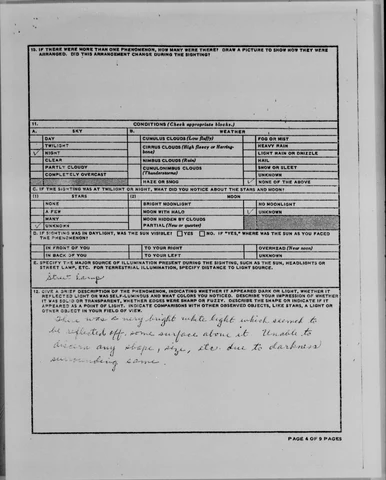 10. IF THERE WERE MORE THAN ONE PHENOMENON, HOW MANY WERE THERE? DRAW A PICTURE TO SHOW HOW THEY WERE
ARRANGED. DID THIS ARRANGEMENT CHANGE DURING THE SIGHTING?
11. CONDITIONS (Check appropriate blocks.)
A. SKY B. WEATHER
DAY CUMULUS CLOUDS (Low fluffy) FOG OR MIST
TWILIGHT CIRRUS CLOUDS (High fleecy or Herring-bone) HEAVY RAIN
✓ NIGHT LIGHT RAIN OR DRIZZLE
CLEAR NIMBUS CLOUDS (Rain) HAIL
PARTLY CLOUDY CUMULONIMBUS CLOUDS (Thunderstorms) SNOW OR SLEET
COMPLETELY OVERCAST UNKNOWN
HAZE OR SMOG ✓ NONE OF THE ABOVE
C. IF THE SIGHTING WAS AT TWILIGHT OR NIGHT, WHAT DID YOU NOTICE ABOUT THE STARS AND MOON?
(1) STARS (2) MOON
NONE BRIGHT MOONLIGHT NO MOONLIGHT
A FEW MOON WITH HALO ✓ UNKNOWN
MANY MOON HIDDEN BY CLOUDS
✓ UNKNOWN PARTIAL (New or quarter)
D. IF SIGHTING WAS IN DAYLIGHT, WAS THE SUN VISIBLE? YES NO. IF "YES," WHERE WAS THE SUN AS YOU FACED
THE PHENOMENON?
IN FRONT OF YOU TO YOUR RIGHT OVERHEAD (Near noon)
IN BACK OF YOU TO YOUR LEFT UNKNOWN
E. SPECIFY THE MAJOR SOURCE OF ILLUMINATION PRESENT DURING THE SIGHTING, SUCH AS THE SUN, HEADLIGHTS OR
STREET LAMP, ETC. FOR TERRESTRIAL ILLUMINATION, SPECIFY DISTANCE TO LIGHT SOURCE.
Street lamp
12. GIVE A BRIEF DESCRIPTION OF THE PHENOMENON, INDICATING WHETHER IT APPEARED DARK OR LIGHT, WHETHER IT
REFLECTED LIGHT OR WAS SELF-LUMINOUS AND WHAT COLORS YOU NOTICED. DESCRIBE YOUR IMPRESSION OF WHETHER
IT WAS SOLID OR TRANSPARENT, WHETHER EDGES WERE SHARP OR FUZZY. DESCRIBE THE SHAPE OR INDICATE IF IT
APPEARED AS A POINT OF LIGHT. INDICATE COMPARISONS WITH OTHER OBSERVED OBJECTS, LIKE STARS, A LIGHT OR
OTHER OBJECT IN YOUR FIELD OF VIEW.
There was a very bright white light which seemed to
be reflected off some surface above it. Unable to
discern any shape, size, etc. due to darkness
surrounding same.
PAGE 4 OF 9 PAGES